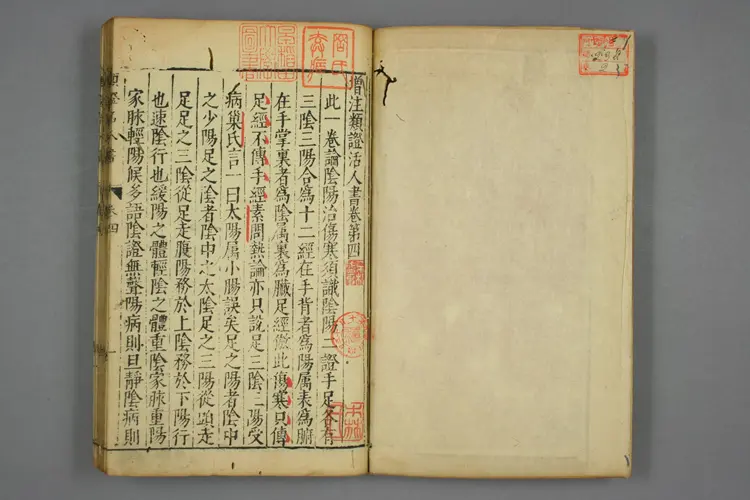 增注類證活人書卷第四
此一卷論陰陽治傷寒須識陰陽二證手足各有
三陰三陽合爲十二經在手背者爲陽屬表爲腑
在手掌裏者爲陰屬裏爲臟足經倣此傷寒只傳
足經不傳手經素問熱論亦只說足三陰三陽受
病巢氏言一曰太陽屬小腸誤矣足之陽者陰中
之少陽足之陰者陰中之太陰足之三陽從頭走
足足之三陰從足走腹陽務於上陰務於下陽行
也速陰行也緩陽之體輕陰之體重陰家脉重陽
家脉輕陽候多語陰證無聲陽病則旦靜陰病則